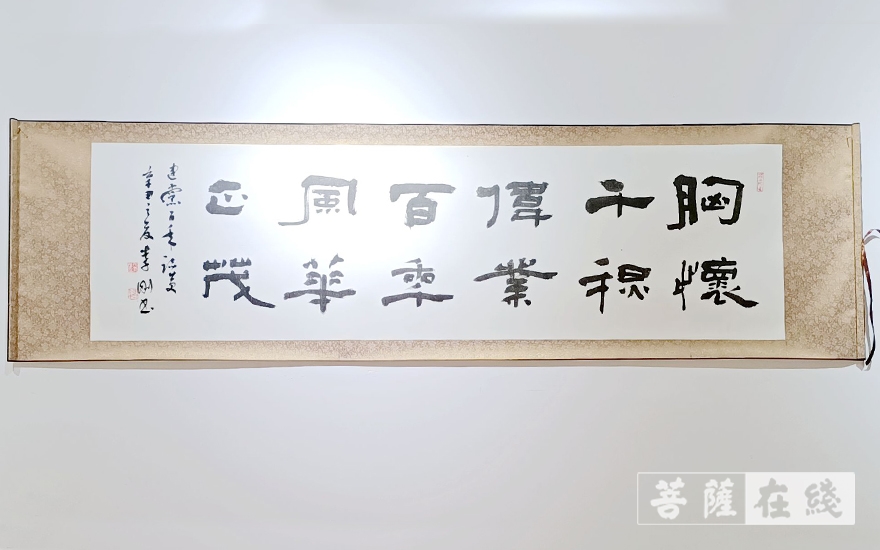 胸懷
千秋
偉業
百年
風華
正茂
建黨百年
辛丑之夏李刚书
菩薩在綫